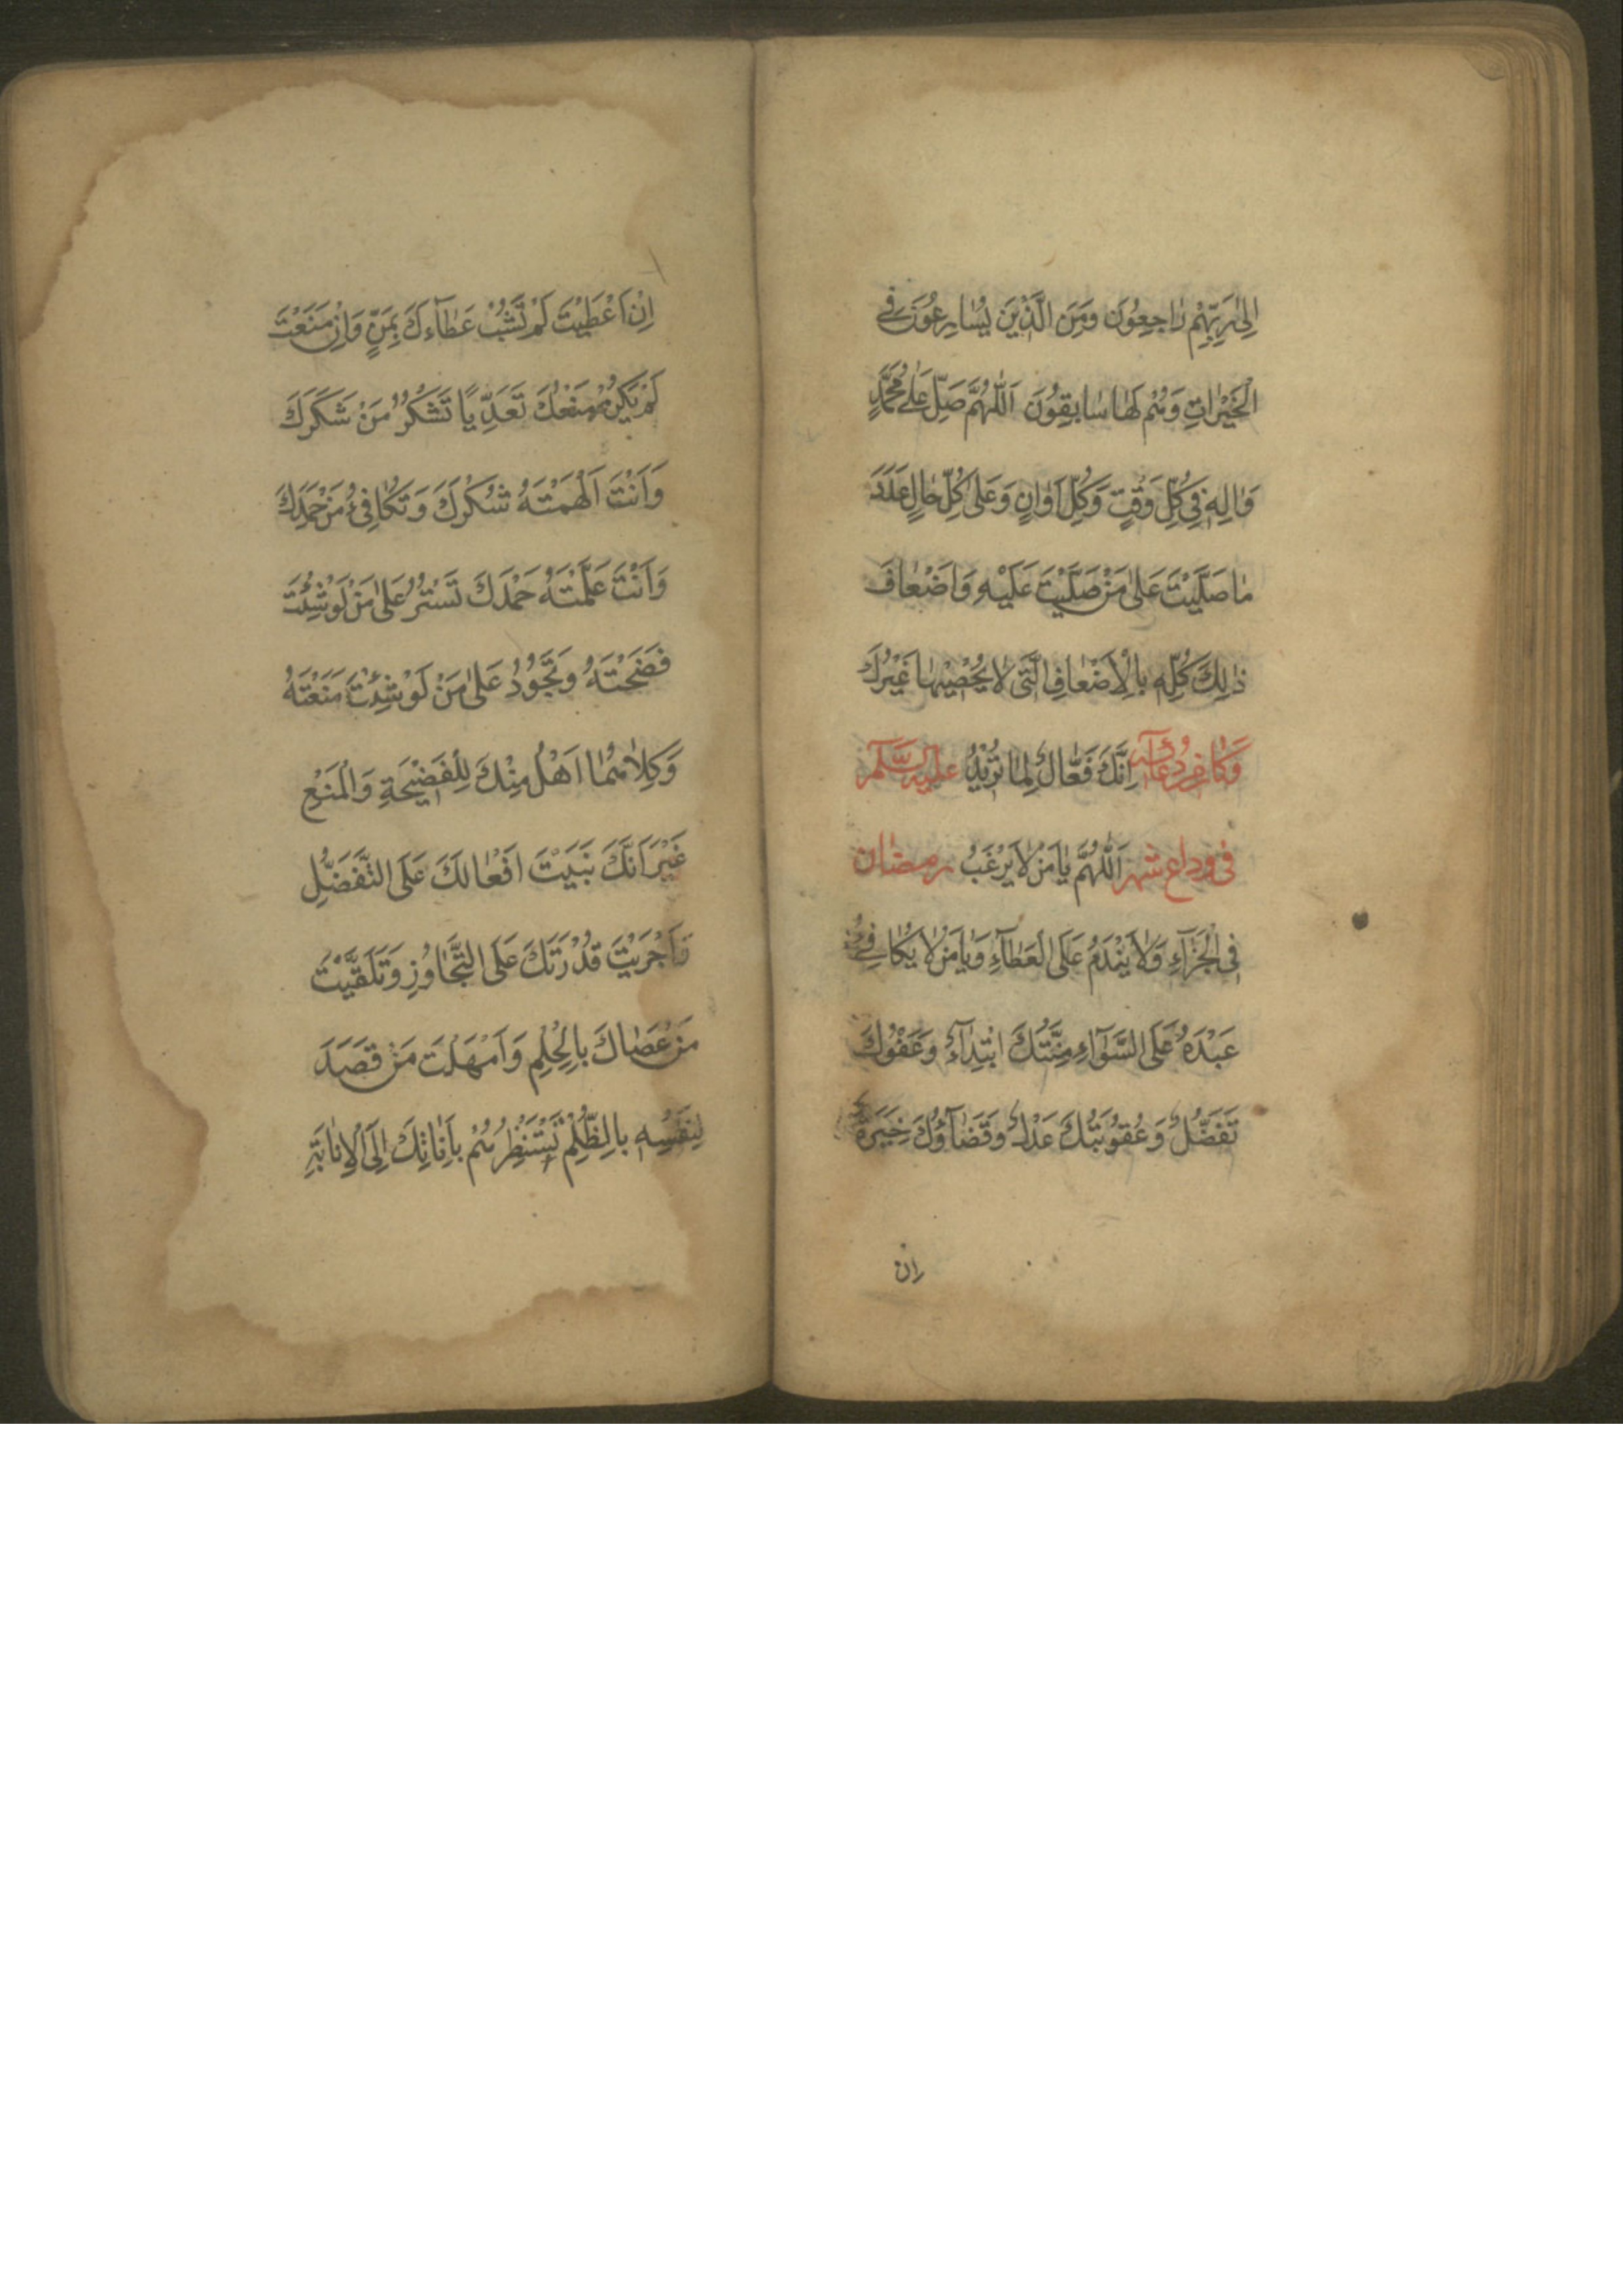 اِلٰى رَبِّهِمْ رٰاجِعُونَ وَمِنَ الَّذِينَ يُسٰارِعُونَ فِى
الْخَيْرٰاتِ وَهُمْ لَهٰا سٰابِقُونَ اَللّٰهُمَّ صَلِّ عَلٰى مُحَمَّدٍ
وَاٰلِهِ فِى كُلِّ وَقْتٍ وَكُلِّ اَوٰانٍ وَعَلٰى كُلِّ حٰالٍ عَدَدَ
مٰا صَلَّيْتَ عَلٰى مَنْ صَلَّيْتَ عَلَيْهِ وَاَضْعٰافَ
ذٰلِكَ كُلِّهِ بِالْاَضْعٰافِ الَّتِى لٰا يُحْصِيْهٰا غَيْرُكَ
اِنَّكَ فَعّٰالٌ لِمٰا تُرِيْدُ وَكٰانَ مِنْ دُعٰآئِهِ عليه السَّلٰم
فى وداع شهر رمضان اَللّٰهُمَّ يٰا مَنْ لٰا يَرْغَبُ
فِى الْجَزٰآءِ وَلٰا يَنْدَمُ عَلَى الْعَطٰآءِ وَيٰا مَنْ لٰا يُكٰافِئُ
عَبْدَهُ عَلَى السَّوٰآءِ مِنَّتُكَ ابْتِدٰآءٌ وَعَفْوُكَ
تَفَضُّلٌ وَعُقُوبَتُكَ عَدْلٌ وَقَضٰآؤُكَ خِيَرَةٌ
اِن
اِنْ اَعْطَيْتَ لَمْ تَشُبْ عَطٰآءَكَ بِمَنٍّ وَاِنْ مَنَعْتَ
لَمْ يَكُنْ مَنْعُكَ تَعَدِّيًا تَشْكُرُ مَنْ شَكَرَكَ
وَاَنْتَ اَلْهَمْتَهُ شُكْرَكَ وَتُكٰافِئُ مَنْ حَمِدَكَ
وَاَنْتَ عَلَّمْتَهُ حَمْدَكَ تَسْتُرُ عَلٰى مَنْ لَوْ شِئْتَ
فَضَحْتَهُ وَتَجُوْدُ عَلٰى مَنْ لَوْ شِئْتَ مَنَعْتَهُ
وَكِلٰاهُمٰا اَهْلٌ مِنْكَ لِلْفَضِيْحَةِ وَالْمَنْعِ
غَيْرَ اَنَّكَ بَنَيْتَ اَفْعٰالَكَ عَلَى التَّفَضُّلِ
وَاَجْرَيْتَ قُدْرَتَكَ عَلَى التَّجٰاوُزِ وَتَلَقَّيْتَ
مَنْ عَصٰاكَ بِالْحِلْمِ وَاَمْهَلْتَ مَنْ قَصَدَ
لِنَفْسِهِ بِالظُّلْمِ تَسْتَنْظِرُهُمْ بِاَنٰاتِكَ اِلَى الْاِنٰابَةِ